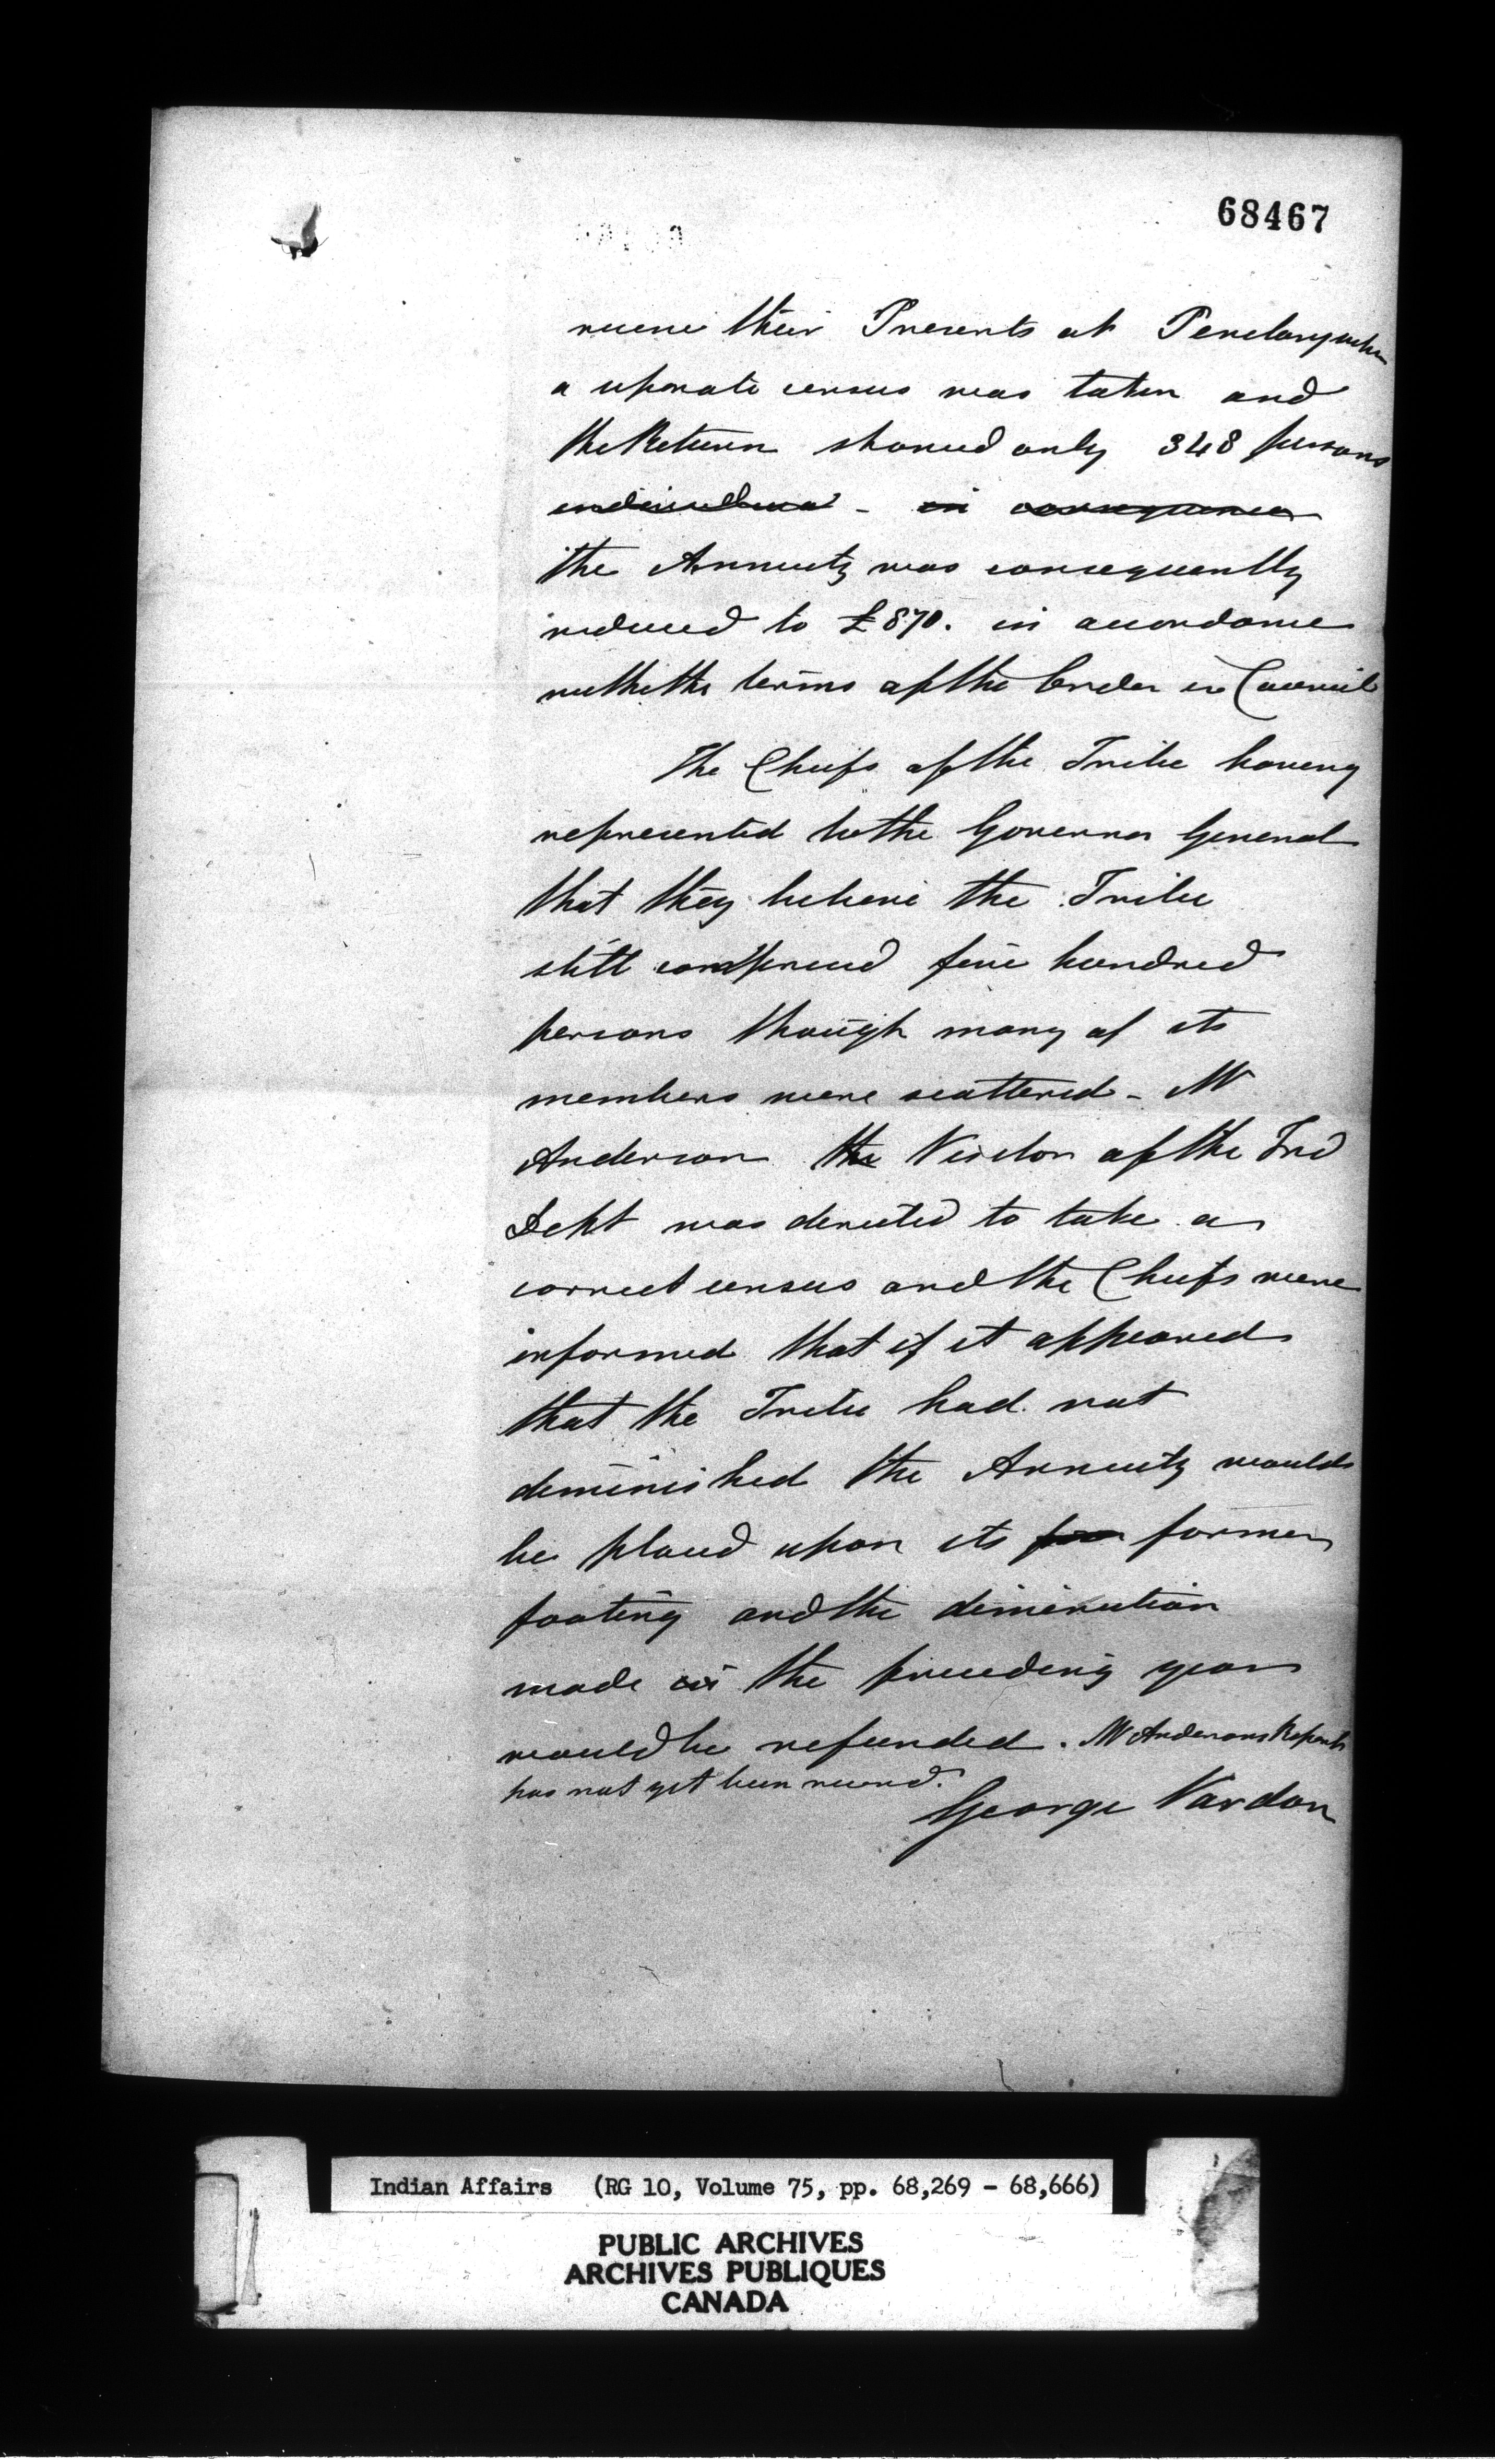 68467
receive their Presents at Penetanguishene
a separate census was taken and
the Return showed only 348 persons
individuals - in consequence
the Annuity was consequently
reduced to £870. in accordance
with the terms of the Order in Council
The Chiefs of the Tribe having
represented to the Governor General
that they believe the Tribe
still comprised five hundred
persons though many of its
members were scattered - Mr
Anderson the Visitor of the Ind
Dept was directed to take a
correct census and the Chiefs were
informed that if it appeared
that the Tribe had not
diminished the Annuity would
be placed upon its former
footing and the diminution
made in the preceding year
would be refunded. Mr Andersons Report
has not yet been received.
George Vardon
Indian Affairs (RG 10, Volume 75, pp. 68,269 - 68,666)
PUBLIC ARCHIVES
ARCHIVES PUBLIQUES
CANADA